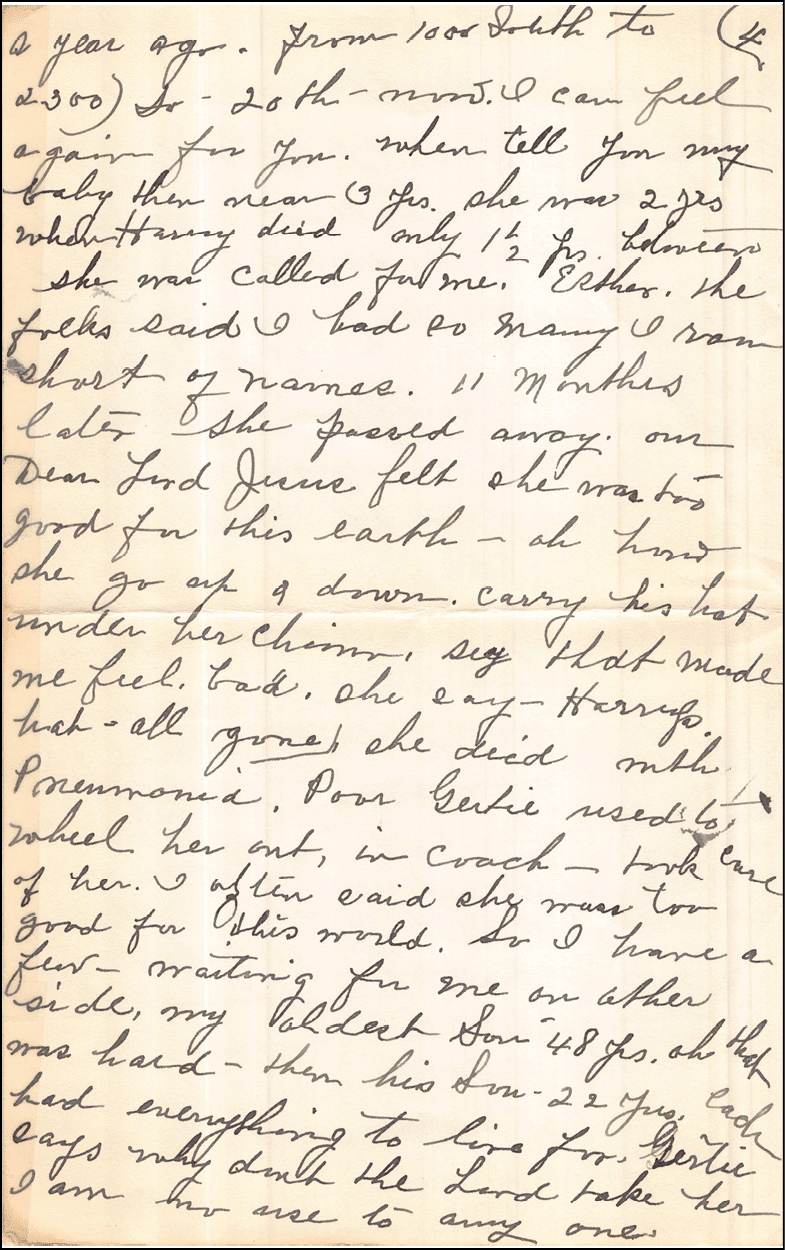 a year ago. from 1000 South to (4
2300) So - 20th - now. I can feel
again for you. when tell you my
baby then near 3 yrs. she was 2 yrs
when Harry died only 1 1/2 yrs. between
she was called for me. Esther. the
folks said I had so many I ran
short of names. 11 Months
later she passed away. our
Dear Lord Jesus felt she was too
good for this earth - oh how
she go up & down. carry his hat
under her chinn, sey that made
me feel. bad. she say - Harrys.
hat - all gone! she died mth
Pneumonia. Poor Gertie used to
wheel her out, in coach - took care
of her. I often said she was too
good for this world. So I have a
few - waiting for me on other
side, my oldest Son 48 yrs. oh that
was hard - then his Son - 22 yrs. each
had everything to live for. Gertie
says why dont the Lord take her
I am no use to any one.